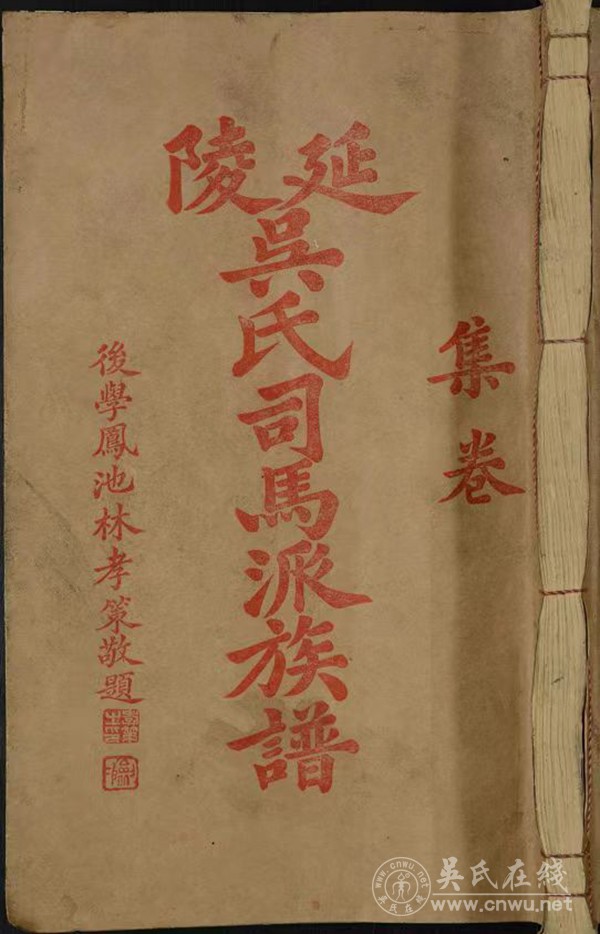 集卷
延陵
吳氏司馬派族譜
後學鳳池林孝策敬題
吳氏在线
www.cnwu.net